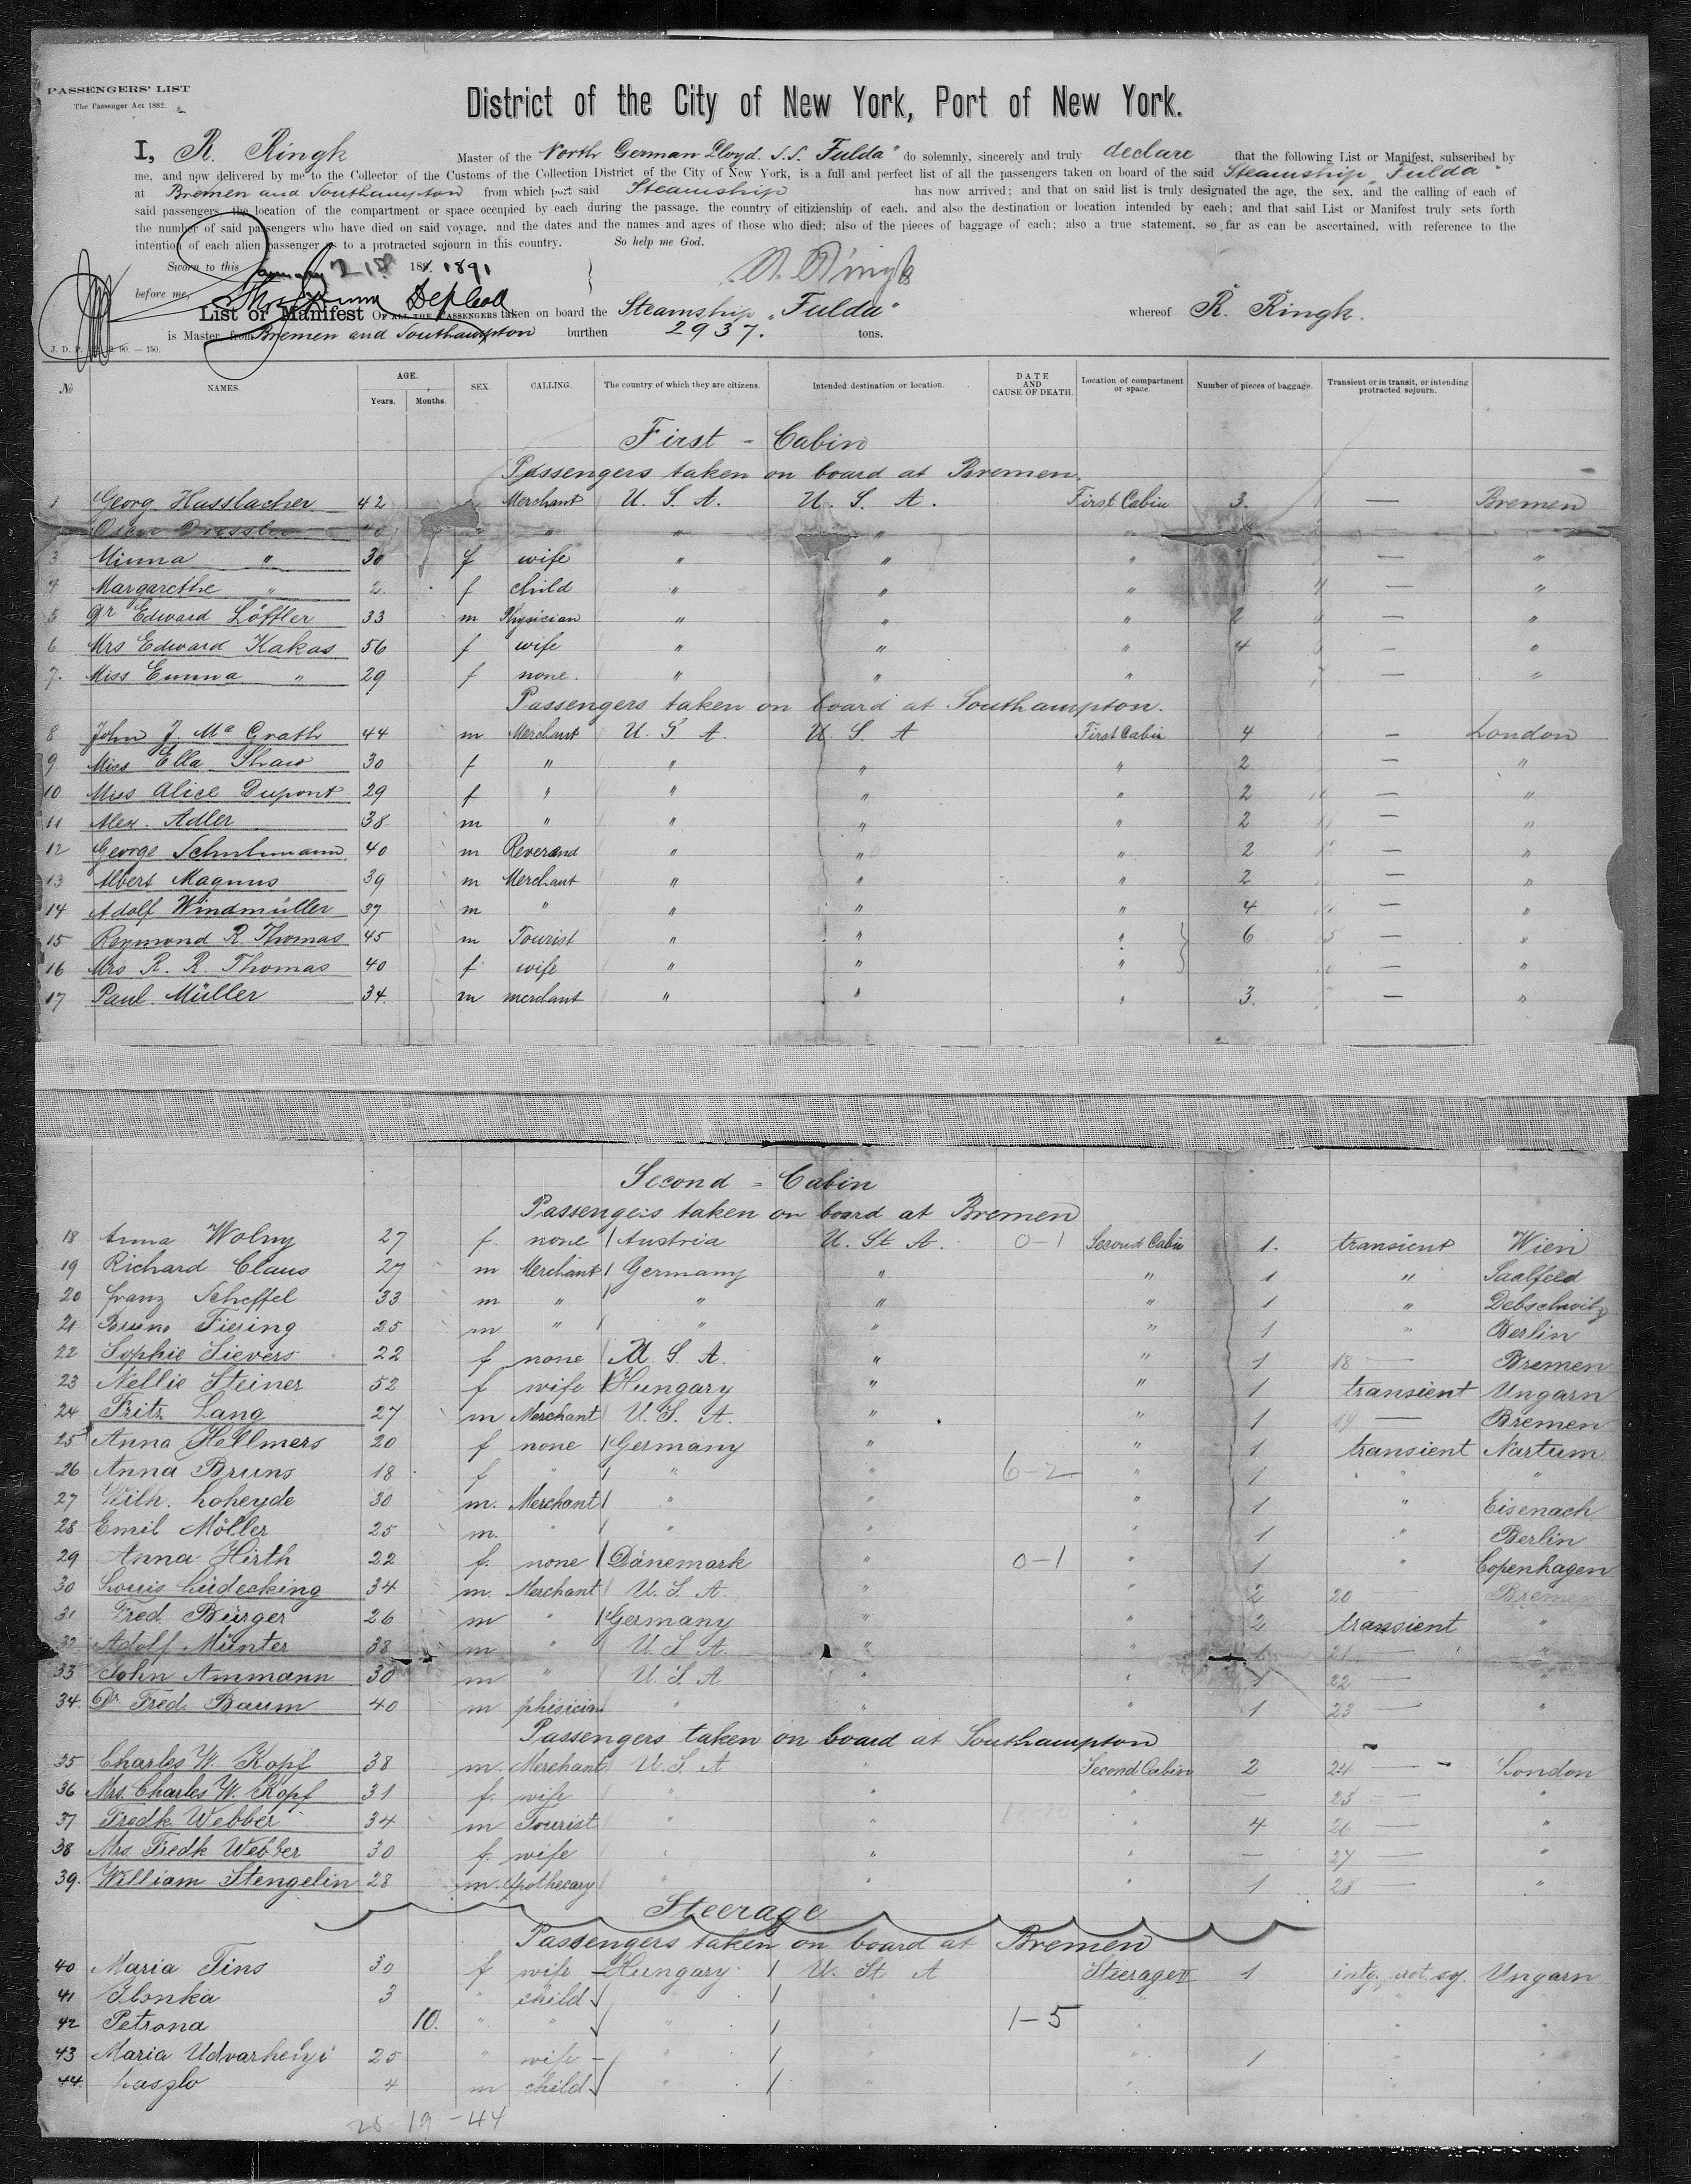 PASSENGERS' LIST
The Passenger Act 1882.
District of the City of New York, Port of New York.
I, R. Ringk Master of the North German Lloyd. S.S. Fulda" do solemnly, sincerely and truly declare that the following List or Manifest, subscribed by
me, and now delivered by me to the Collector of the Customs of the Collection District of the City of New York, is a full and perfect list of all the passengers taken on board of the said Steamship „Fulda"
at Bremen and Southampton from which port said Steamship has now arrived; and that on said list is truly designated the age, the sex, and the calling of each of
said passengers, the location of the compartment or space occupied by each during the passage, the country of citizienship of each, and also the destination or location intended by each; and that said List or Manifest truly sets forth
the number of said passengers who have died on said voyage, and the dates and the names and ages of those who died; also of the pieces of baggage of each; also a true statement, so far as can be ascertained, with reference to the
intention of each alien passenger as to a protracted sojourn in this country. So help me God.
Sworn to this January 21 1891 R. Ringk
before me,
List or Manifest OF ALL THE PASSENGERS taken on board the Steamship „Fulda" whereof R. Ringk.
is Master from Bremen and Southampton burthen 2937. tons.
№ NAMES. AGE. Years. Months. SEX. CALLING. The country of which they are citizens. Intended destination or location. DATE AND CAUSE OF DEATH. Location of compartment or space. Number of pieces of baggage. Transient or in transit, or intending protracted sojourn.
First - Cabin
Passengers taken on board at Bremen
1 Georg Hasslacher 42 Merchant U. S. A. U. S. A. First Cabin 3. — Bremen
Oscar Dressler 40 " " " "
3 Minna " 30 f wife " " " — "
4 Margarethe " 2 f child " " " — "
5 Dr Edward Löffler 33 m Physician " " " 2 — "
6 Mrs Edward Kakas 56 f wife " " " 4 — "
7. Miss Emma " 29 f none. " " " — "
Passengers taken on board at Southampton.
8 John J. Mc Grath 44 m Merchant U. S. A. U. S. A First Cabin 4 — London
9 Miss Ella Shaw 30 f " " " " 2 — "
10 Miss Alice Dupont 29 f " " " " 2 — "
11 Alex. Adler 38 m " " " " 2 — "
12 George Schuhmann 40 m Reverend " " " 2 — "
13 Albert Magnus 39 m Merchant " " " 2 — "
14 Adolf Windmüller 37 m " " " " 4 — "
15 Reymond R. Thomas 45 m Tourist " " " 6 — "
16 Mrs R. R. Thomas 40 f wife " " " — "
17 Paul Müller 34. m merchant " " " 3. — "
Second - Cabin
Passengers taken on board at Bremen
18 Anna Wolny 27 f none Austria U. St. A. 0-1 Second Cabin 1. transient Wien
19 Richard Claus 27 m Merchant Germany " " 1 " Saalfeld
20 Franz Scheffel 33 m " " " " 1 " Debschwitz
21 Bruno Fiesing 25 m " " " " 1 " Berlin
22 Sophie Sievers 22 f none U. S. A. " " 1 18 — Bremen
23 Nellie Steiner 52 f wife Hungary " " 1 transient Ungarn
24 Fritz Lang 27 m Merchant U. S. A. " " 1 19 — Bremen
25 Anna Hellmers 20 f none Germany " " 1 transient Nartum
26 Anna Bruns 18 f " " " 6-2 " 1 " "
27 Wilh. Loheyde 30 m. Merchant " " " 1 " Eisenach
28 Emil Möller 25 m. " " " " 1 " Berlin
29 Anna Hirth 22 f. none Dänemark " 0-1 " 1 " Copenhagen
30 Louis Lüdecking 34 m. Merchant U. S. A. " " 2 20 Bremen
31 Fred. Bürger 26 m " Germany " " 2 transient "
32 Adolf Münter 38 m " U. S. A. " " 1 21 — "
33 John Ammann 30 m " U. S. A " " 1 22 — "
34. Dr. Fred. Baum 40 m phisician " " " 1 23 — "
Passengers taken on board at Southampton
35 Charles W. Kopf 38 m. Merchant U. S. A " Second Cabin 2 24 — London
36 Mrs. Charles W. Kopf 31 f. wife " " " — 25 — "
37 Fredk. Webber 34 m Tourist " " " 4 26 — "
38 Mrs. Fredk Webber 30 f. wife " " " — 27 — "
39. William Stengelin 28 m. Apothecary " " " 1 28 — "
Steerage
Passengers taken on board at Bremen
40 Maria Tins 30 f wife Hungary U. St. A Steerage 1 intg. prot. soj. Ungarn
41 Ilonka 3 " child " " " " "
42 Petrona 10. " " " " 1-5 " " "
43 Maria Udvarhelyi 25 " wife " " " 1 " "
44. Laszlo 4 m child " " " " "
25-19-44